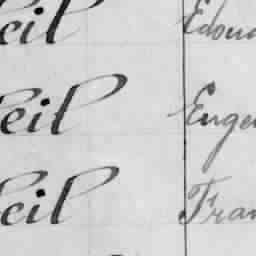 eil Edoua
eil Euge
eil Fran